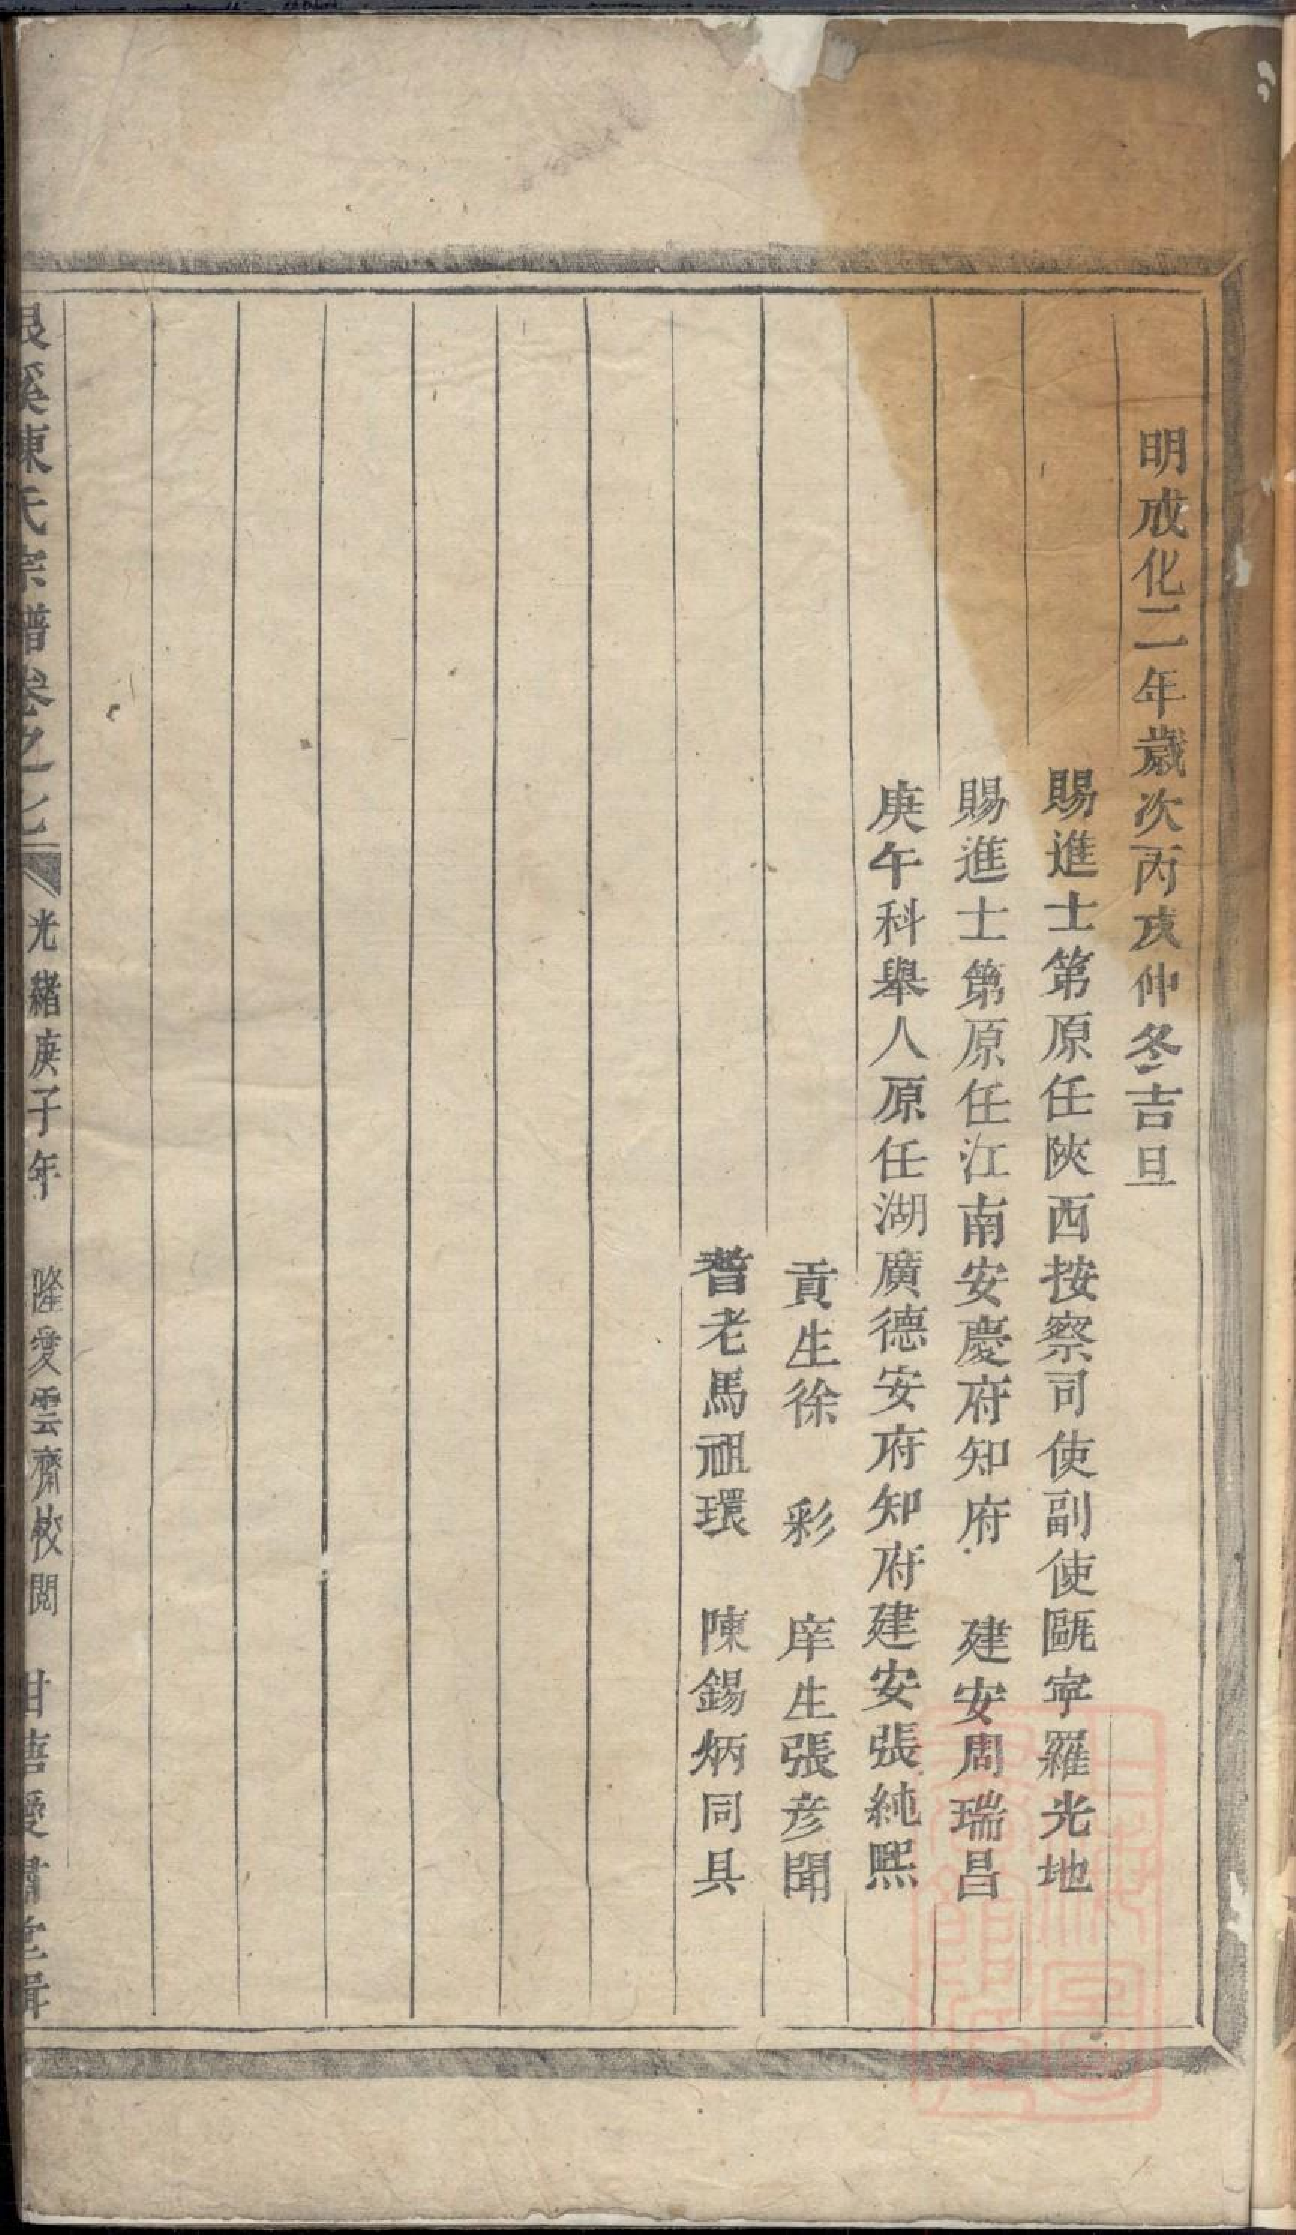 明成化二年歲次丙亥仲冬吉旦
賜進士第原任陝西按察司使副使甌寧羅光地
賜進士第原任江南安慶府知府 建安周瑞昌
庚午科舉人原任湖廣德安府知府建安張純熙
貢生徐 彩 庠生張彦聞
耆老馬祖環 陳錫炳同具
溪陳氏宗譜卷之七 光緒庚子年 隆愛雲齋校閱